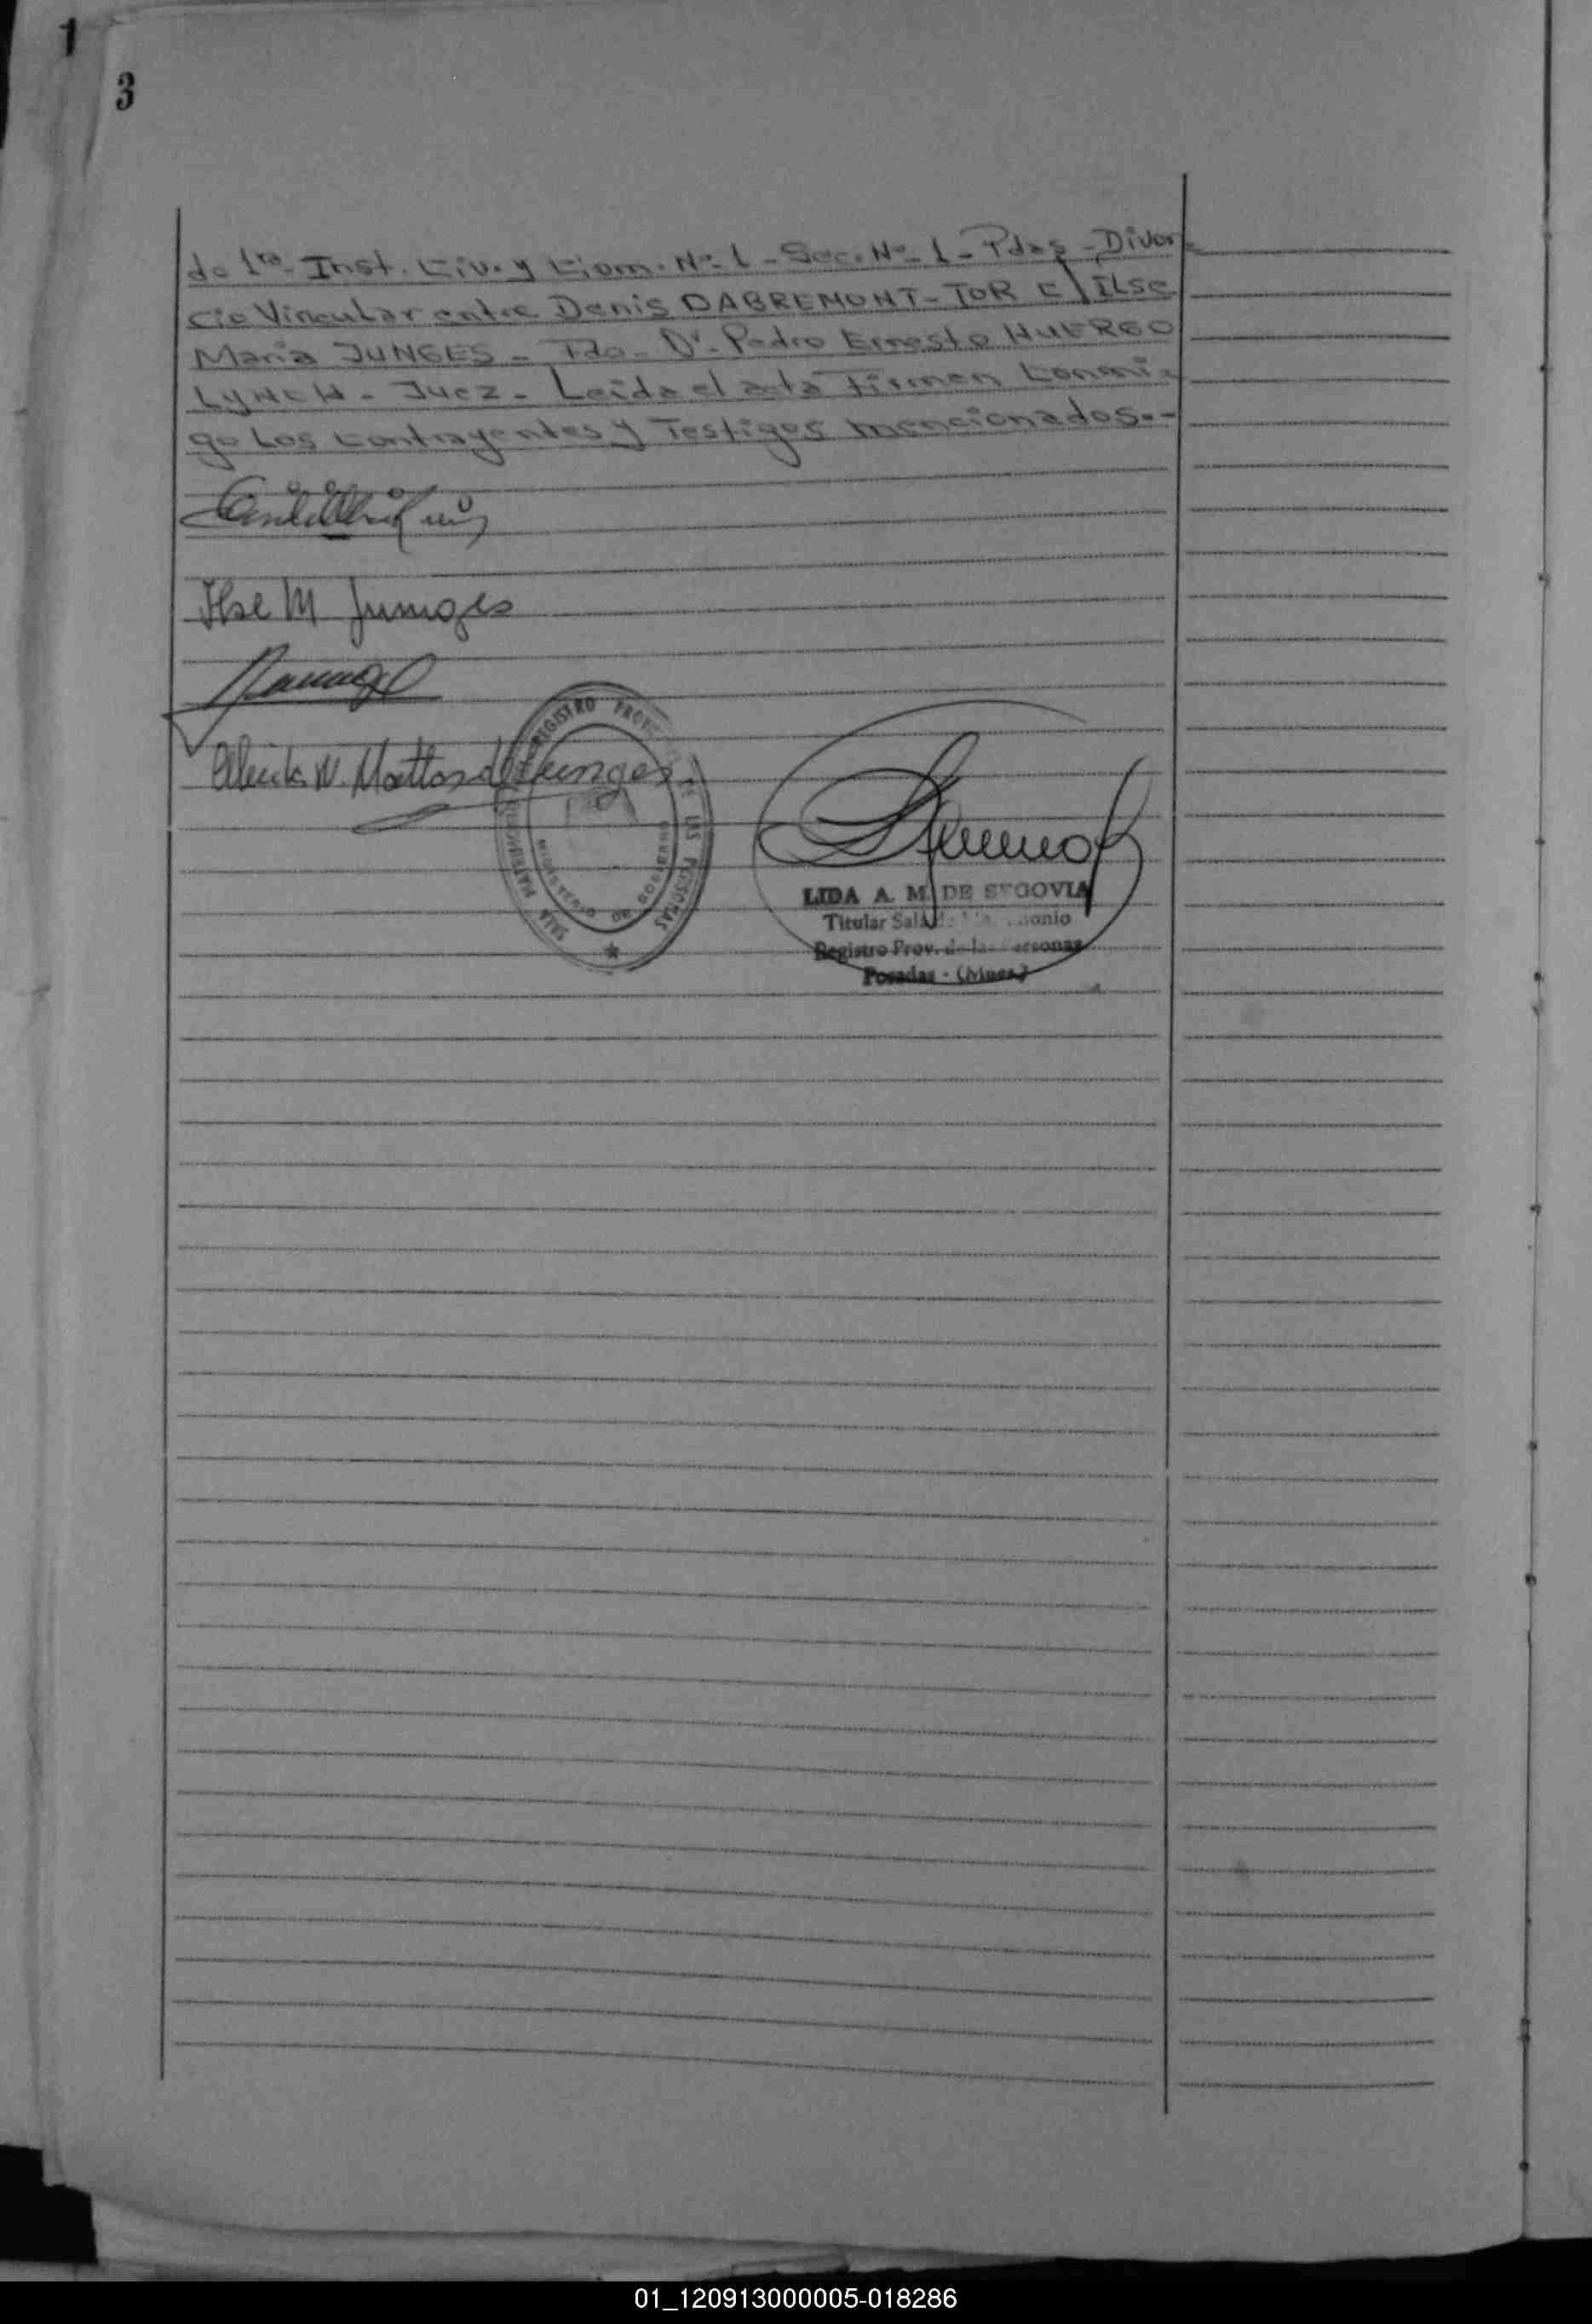 1
3
de 1ra. Inst. Civ. y Com. Nº 1 - Sec. Nº 1 - Pdas - Divor
cio Vincular entre Denis DABREMONT-TOR C/ Ilse
María JUNGES - Fdo. Dr. Pedro Ernesto HUERGO
LYNCH - Juez - Leída el acta Firman Conmi-
go Los Contrayentes y Testigos mencionados.-
Ilse M Junges
W. Mattos de Junges
REGISTRO PROV DE LAS PERSONAS
SALA MATRIMONIO
MINISTERIO DE GOBIERNO
LIDA A. M. DE SEGOVIA
Titular Sala de onio
Registro Prov. de las Personas
Posadas - (Mnes.)
01_120913000005-018286